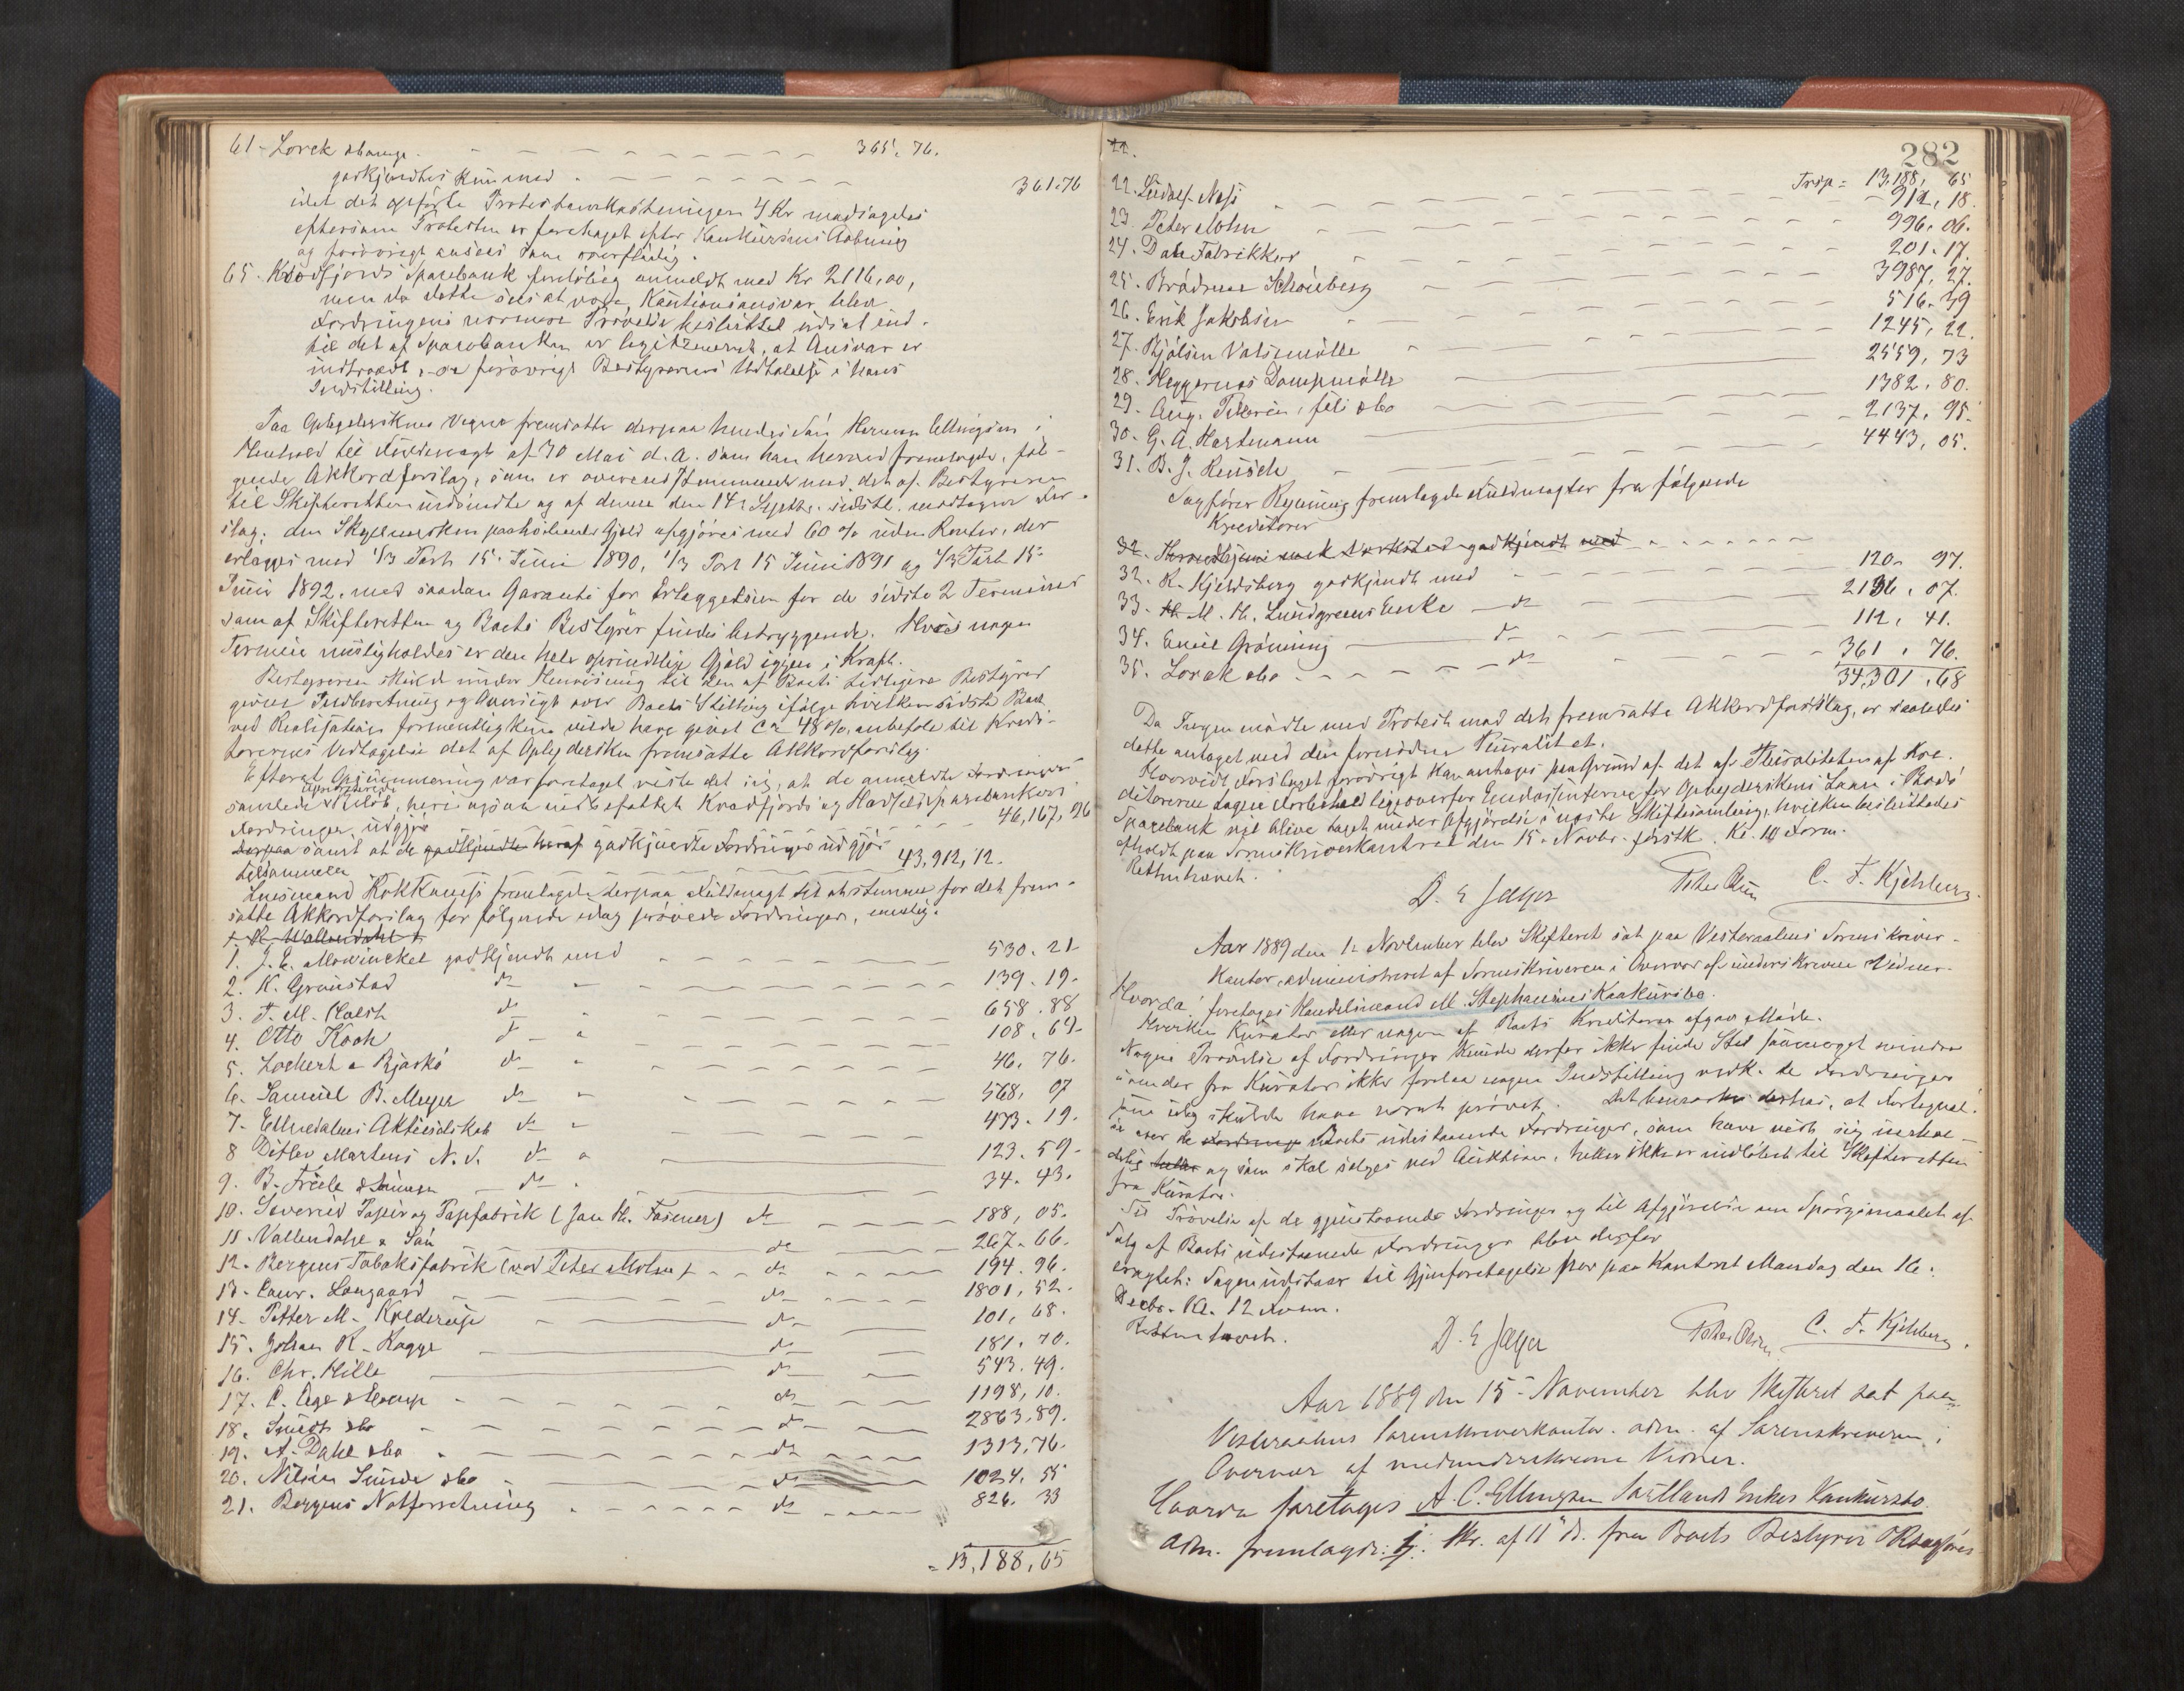 61 - Lorck & Comp. 365, 76.
godkjendtes kun med 361. 76
idet det opførte Protestomkostninger 4 Kr modsagdes
eftersom Protesten er foretaget efter Konkursens Aabning
og forøvrigt ansees som overflødig.
65. Kvædfjords Sparebank foreløbig anmeldt med Kr 2116,00,
men da dette sees at være Kautionsansvar blev
Fordringens nærmere Prøvelse besluttet udsat ind-
til det af Sparebanken er legitimeret, at Ansvar er
indtraadt, se forøvrigt Bestyrerens Udtalelse i hans
Indstilling.
Paa Opbyderskens Vegne fremsatte derpaa hendes Søn Herman Ellingsen i
Henhold til Fuldmagt af 30 Mai d. A. som han herved fremlagde, føl-
gende Akkordforslag, som er overensstemmende med det af Bestyreren
til Skifteretten indsendte og af denne den 14. Septbr. sidstl. modtagne For-
slag: den Skyldnersken paahvilende Gjæld afgjøres med 60 % uden Renter, der
erlægges med 1/3 Part 15. Juni 1890, 1/3 Part 15 Juni 1891 og 1/3 Part 15.
Juni 1892, med saadan Garanti for Erlæggelsen for de sidste 2 Terminer
som af Skifteretten og Boets Bestyrer findes betryggende. Hvis nogen
Termin misligholdes er den hele oprindelige Gjæld igjen i Kraft.
Bestyreren skulde under Henvisning til den af Boets tidligere Bestyrer
givne Indberetning og Oversigt over Boets Stilling ifølge hvilken sidste Boet
ved Realisation formentlig kun vilde have givet Ca 48 %, anbefale til Kredi-
torernes Vedtagelse det af Opbydersken fremsatte Akkordforslag.
Efterat Opsummering var foretaget viste det sig, at de anmeldte Fordringers
samlede Beløb, heri ogsaa indbefattet Kvædfjords og Hadsels Sparebankers
Fordringer, udgjør 46,167, 26
samt at de godkjendte Fordringer udgjør
tilsammen 43,912, 12.
Lensmand Rokkones fremlagde derpaa Fuldmagt til at stemme for det frem-
satte Akkordforslag for følgende idag prøvede Fordringer, nemlig:
1. J. E. Mowinckel godkjendt med 530. 21
2. K. Grønstad do 139. 19.
3. F. M. Holst do 658. 88
4. Otto Koch do 108. 69
5. Lockert & Bjarkø do 46. 76.
6. Samuel B. Meyer do 568, 07
7. Ellnedalens Aktieselskab do 473. 19.
8 Ditlev Martens N. S. do 123. 59.
9. B. Friele & Sønner do 34. 43.
10. Soverud Papir og Papfabrik (Jan H. Fasmer) do 188, 05.
11. Vallendahl & Søn do 267. 66.
12. Bergens Tobaksfabrik (ved Peter Mohn) do 194. 96.
13. Conr. Langaard do 1801, 52.
14. Petter M. Kolderup do 101, 68.
15. Johan R. Kagge do 181. 70.
16. Chr. Hille do 543. 49.
17. C. Ege & Comp do 1198, 10.
18. Smedt & Co do 2863, 89.
19. A. Dahl & Co do 1313, 76.
20. Nilsen Sunde & Co do 1024. 55
21. Bergens Notforretning do 826. 33
13,188, 65
282
Trsp = 13,188, 65
22. Ludolf Nass 912, 18.
23 Peter Mohn 996. 06.
24. Dale Fabrikker 201. 17.
25. Brødrene Schönberg 3987, 27.
26. Erik Jakobsen 516. 39
27. Bjølsen Valsemølle 1245, 22.
28. Heggernes Dampmølle 2559, 73
29. Aug. Pellerin, fils & Co 1382, 80.
30. G. A. Hartmann 2137, 95.
31. B. J. Reusch 4443, 05.
Sagfører Rynning fremlagde Fuldmagter fra følgende
Kreditorer
32. R. Kjeldsberg godkjendt med 120. 97.
33. M. H. Lundgreens Enke do 2136, 07.
34. Emil Grønning do 112, 41.
35. Lorck & Co do 361, 76.
34,301, 68
Da Ingen mødte med Protest mod det fremsatte Akkordforslag, er saaledes
dette antaget med den fornødne Pluralitet.
Hvorvidt Forslaget forøvrigt kan antages paa Grund af det af Pluraliteten af Kre-
ditorerne tagne Forbehold ligeoverfor Endossenterne for Opbyderskens Laan i Bodø
Sparebank vil blive taget under Afgjørelse i næste Skiftesamling, hvilken besluttedes
afholdt paa Sorenskriverkontoret den 15. Novbr. førstk. Kl. 10 Form.
Retten hævet.
D. E Jæger Peter Olsen C. F. Kjelsberg.
Aar 1889 den 1. November blev Skifteret sat paa Vesteraalens Sorenskriver-
kontor, administreret af Sorenskriveren i Overvær af underskrevne Vidner.
Hvorda foretoges Handelsmand M. Stephansens Konkursbo.
Hverken Kurator eller nogen af Boets Kreditorer afgav Møde.
Nogen Prøvelse af Fordringer kunde derfor ikke finde Sted saameget mindre
som der fra Kurator ikke forelaa nogen Indstilling vedk. de Fordringer
som idag skulde have været prøvet. Det bemærkes derhos, at Fortegnel-
se over de Boets udestaaende Fordringer, som have vist sig uerhol-
delig og som skal sælges ved Auktion, heller ikke er indløbet til Skifteretten
fra Kurator.
Til Prøvelse af de gjenstaaende Fordringer og til Afgjørelse om Spørgsmaalet af
Salg af Boets udestaaende Fordringer blev derfor
eragtet: Sagen udstaar til Gjenforetagelse her paa Kontoret Mandag den 16.
Decbr. Kl. 12 Form.
Retten hævet.
D. E Jæger Peter Olsen C. F. Kjelsberg.
Aar 1889 den 15. November blev Skifteret sat paa
Vesteraalens Sorenskriverkontor. adm. af Sorenskriveren i
Overvær af medunderskrevne Vidner.
Hvorda foretoges A. C. Ellingsen Sortlands Enkes Konkursbo.
Adm. fremlagde: Skr. af 11 ds. fra Boets Bestyrer ORsagfører